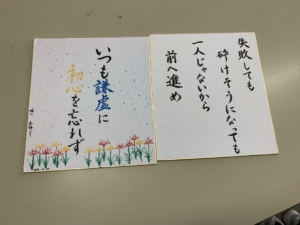 失敗しても
砕けそうになっても
一人じゃないから
前へ進め
いつも謙虚に
初心を忘れず